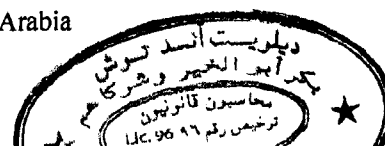 Arabia
ديلويت أند توش
بكر أبو الخير وشركاهم
محاسبون قانونيون
ترخيص رقم ٩٦ Lic. 96